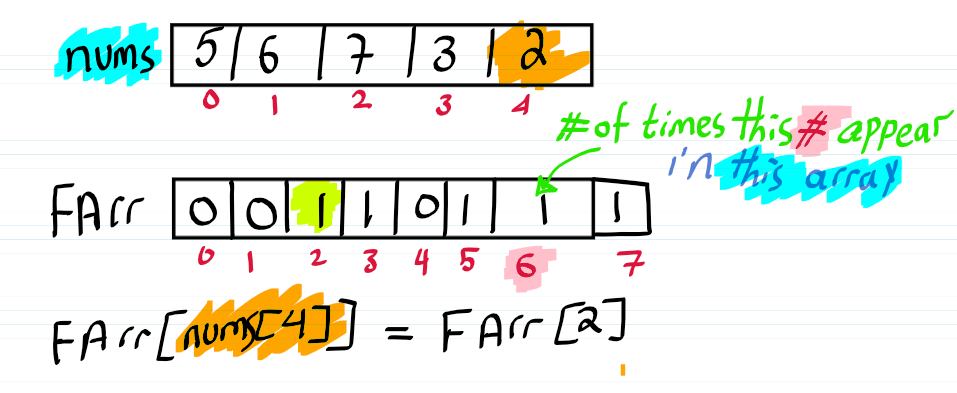 nums 5 6 7 3 2
0 1 2 3 4
# of times this # appear
in this array
FArr 0 0 1 1 0 1 1 1
0 1 2 3 4 5 6 7
FArr[nums[4]] = FArr[2]